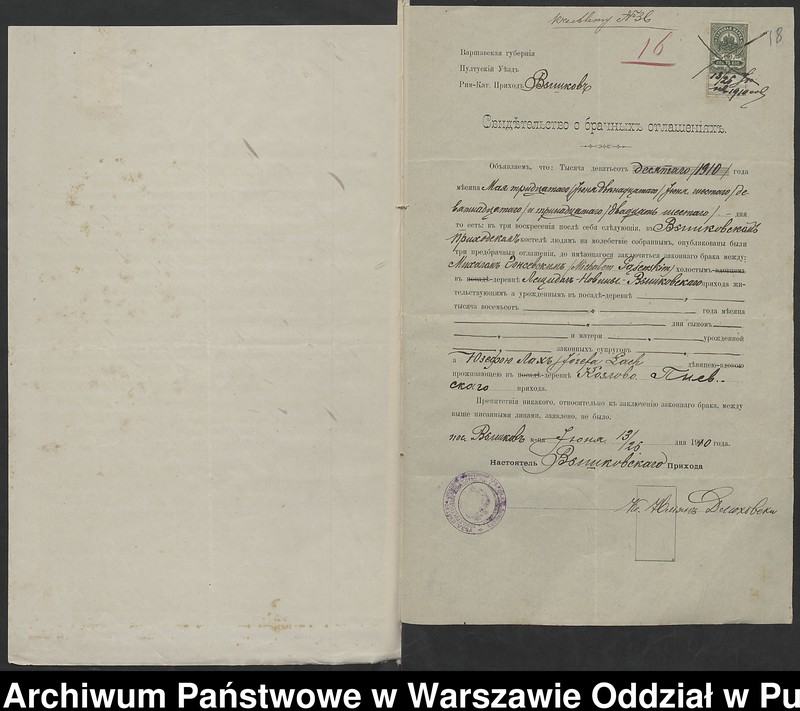 № 36
16
18
Варшавская губернія
Пултускій Уѣздъ
Рим-Кат. Приходъ Вышковъ
13/26
1910
Свидѣтельство о брачныхъ оглашеніяхъ.
Объявляемъ, что: Тысяча девятьсотъ десятаго /1910/ года
мѣсяца Мая тридцатаго /Іюня двѣнадцатаго/, Іюня шестого /де-
вятнадцатаго/ и тринадцатаго /двадцать шестого/ дня
то есть: въ три воскресенія послѣ себя слѣдующія, въ Вышковскомъ
приходскомъ костелѣ людямъ на молебствіе собраннымъ, опубликованы были
три предбрачныя оглашенія, до имѣющагося заключиться законнаго брака между:
Михаломъ Гонсевскимъ /Michałem Gąsewskim/ холостымъ-вдовцемъ
въ посадѣ-деревнѣ Новины Вышковскаго прихода жи-
тельствующимъ а урожденнымъ въ посадѣ-деревнѣ
тысяча восемьсотъ года мѣсяца
дня сыномъ
и матери урожденной
законныхъ супруговъ
а Юзефою Лахъ /Józefą Lach/ дѣвицею-вдовою
проживающею въ посадѣ-деревнѣ Козлово Пнев-
скаго прихода.
Препятствія никакого, относительно къ заключенію законнаго брака, между
выше писанными лицами, заявлено, не было.
пос. Вышковъ Іюня 13/26 дня 1910 года.
Настоятель Вышковскаго Прихода
Archiwum Państwowe w Warszawie Oddział w Pu